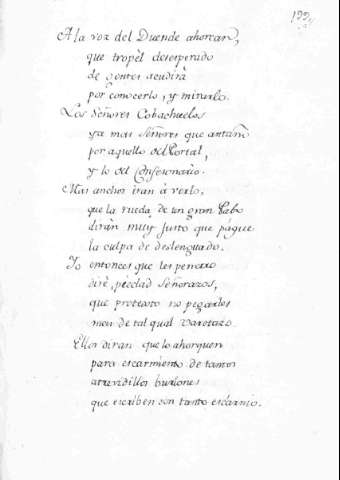 199
A la voz del Duende ahorcan,
que tropèl desesperado
de gentes acudirà
por conocerlo, y mirarlo.
Los Señores Cobachuelos
ya mas Señores que antaño
por aquello del Portal,
y lo del Confesonario.
Mas anchos iran à verlo,
que la rueda de un gran Pabo
diràn muy justo que pague
la culpa de deslenguado.
Yo entonces que les
dirè, piedad Señorazos,
que protesto no pegarles
mas de tal qual varetazo.
Ellos diran que lo ahorquen
para escarmiento de tantos
atrevidillos burlones
que escriben son tanto escarnio.